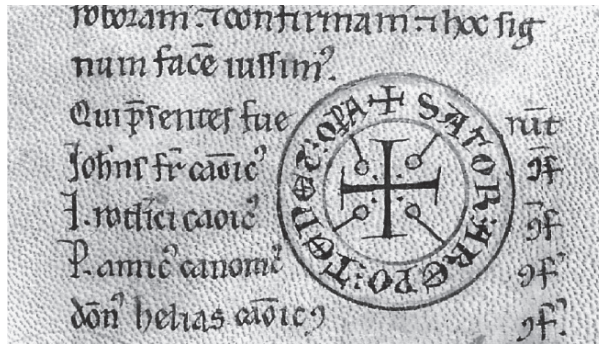 roboram᷒ ⁊ confirmam᷒ ⁊ hoc sig
num fac̄e iussim᷒.
Qui p̄sentes fue rūt
Joh̄ns fr̄ cāoic᷒ ↄf̄
J. rod̄ici caoic᷒ ↄf̄
P. amic᷒ canonic᷒ ↄf᷒
dōn᷒ helias cāoic᷒ ↄf᷒.
✠ SATOR : AREPO : TENET : OPA